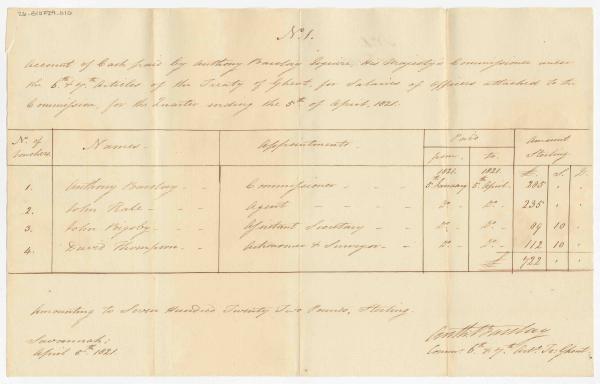 No. 1.
Account of Cash paid by Anthony Barclay Esquire, His Majesty's Commissioner under
the 6th. & 7th. Articles of the Treaty of Ghent, for Salaries of officers attached to the
Commission, for the Quarter ending the 5th. of April, 1821.
No. of Vouchers. Names. Appointments. Paid Amount Sterling
from. to. £. S. D.
1821. 1821.
1. Anthony Barclay Commissioner 5th January 5th April 285 " "
2. John Hale Agent Do. Do. 235 " "
3. John Bigsby Assistant Secretary Do. Do. 89 10 "
4. David Thompson Astronomer & Surveyor Do. Do. 112 10 "
£ 722 " "
Amounting to Seven Hundred Twenty Two Pounds, Sterling.
Savannah;
April 5th. 1821.
Anth. Barclay
Commr. 6th. & 7th. Arts. Ty. Ghent